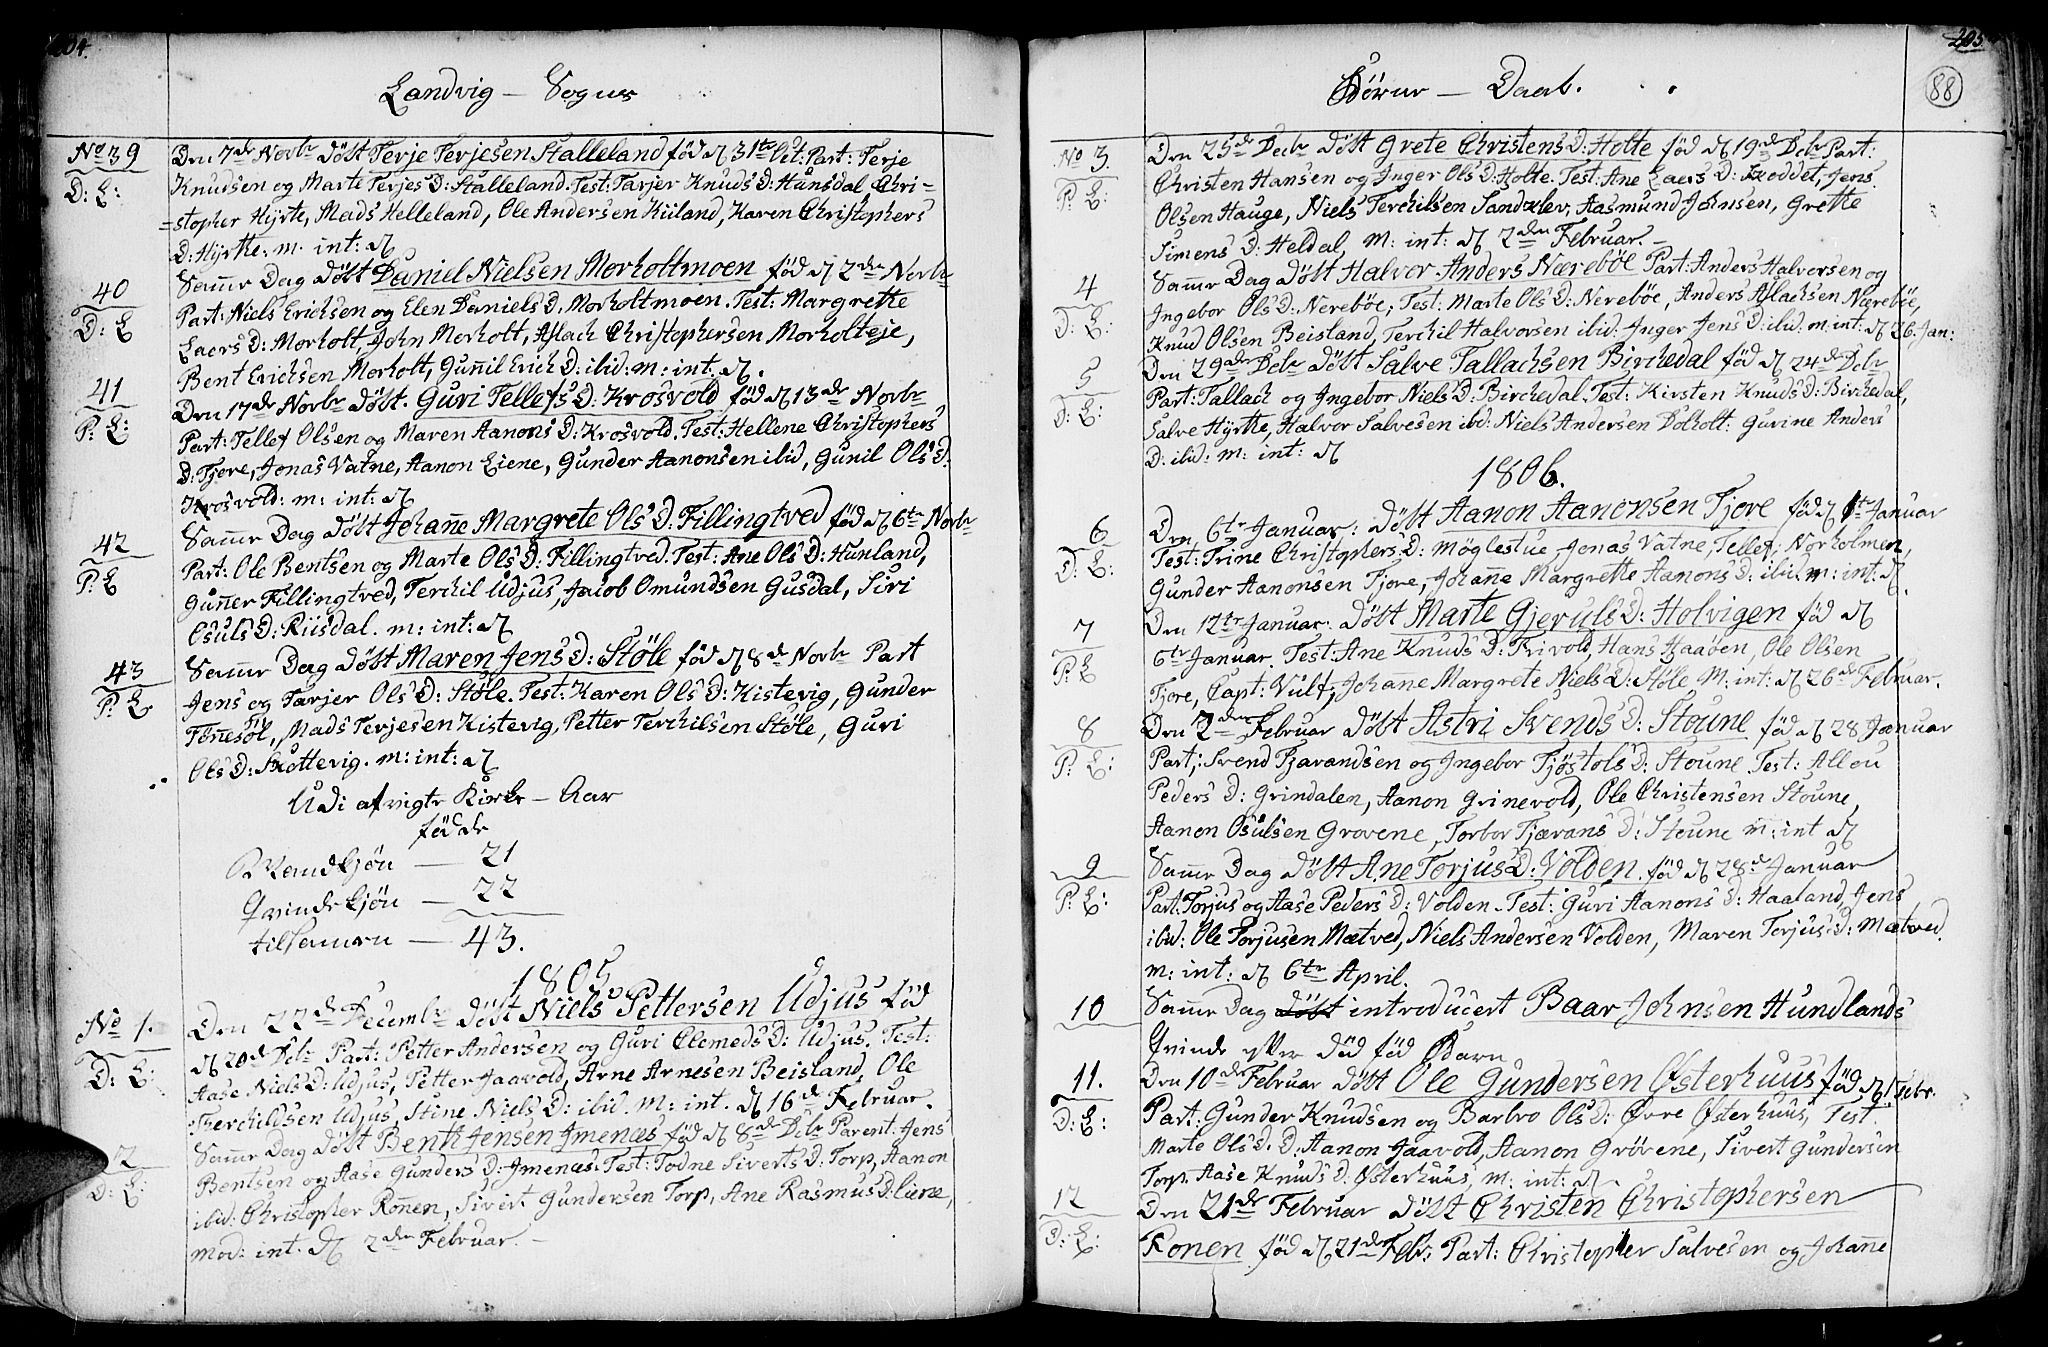 204.
Landvig — Sogns
No 39
D: E:
Den 7de Novbr døbt Terje Terjesen Stalleland fød d 31te Oct: Part: Terje
Knudsen og Marte TerjesD: Stalleland. Test: Tarjer KnudsD: Hunsdal Chri=
=stopher Hyrte, Mads Helleland, Ole Andersen Kiiland, Karen Christophers
D: Hyrtte: m: int: d
40
D: E
Samme Dag døbt Daniel Nielsen Morholtmoen fød d 2de Novbr
Part: Niels Erichsen og Elen DanielsD. Morholtmoen. Test: Margrette
LaersD: Morholt, John Morholt, Aslach Christophersen Morholteje,
Bent Erichsen Morholt, Guñil ErichD: ibid: m: int: d.
41
P: E:
Den 17de Novbr døbt. Guri TellefsD: Krosvold fød d 13de Novbr
Part: Tellef Olsen og Maren AanonsD: Krosvold. Test: Hellene Christophers
D: Fjere, Jonas Vatne, Aanon Liene, Gunder Aanonsen ibid, Gunil OlsD:
Krosvold: m: int: d
42
P: E
Samme Dag døbt Johañe Margrete OlsD. Fillingtved fød d 6te Novbr
Part: Ole Bentsen og Marte OlsD: Fillingtved. Test: Ane OlsD: Hunland,
Guñer Fillingtved, Terchil Udjus, Jacob Omundsen Gusdal, Siri
OsulsD: Riisdal. m: int: d
43
P: E
Samme Dag døbt Maren JensD: Støle fød d 8de Novbr Part
Jens og Tarjer OlsD: Støle. Test: Karen OlsD: Kistevig, Gunder
Tøñesøl, Mads Terjesen Kistevig, Petter Terchilsen Støle, Guri
OlsD: Skottevig. m: int: d
Udi afvigte Kirke — Aar
fødde
Mandkjøn — 21
Qvindekjøn — 22
tilsamen — 43.
1805
No 1.
D: E:
Den 22de Decembr døbt Niels Pettersen Udjus fød
d 20de Decbr Part: Petter Andersen og Guri ClemedsD: Udjus. Test:
Aase NielsD: Udjus, Petter Jaavold, Arne Arnesen Beisland, Ole
Terchildsen Udjus, Stine NielsD: ibid. m: int. d 16de Februar.
2
D: E:
Samme Dag døbt Benth Jensen Jmenæs fød d 8de Decbr Parent: Jens
Bentsen og Aase GundersD: Jmenæs. Test: Todne SivertsD: Torp, Aanon
ibid: Christopher Roñen, Sivert Gundersen Torp, Ane RasmusD: Liene,
mod: int. d 2den Februar. —
Børne — Daab.
205
88
No 3
P: E:
Den 25de Decbr døbt Grete ChristensD: Holte fød d 19de Decbr Part:
Christen Hansen og Inger OlsD: Holte. Test: Ane LaersD: Roddet, Jens
Olsen Hauge, Niels Terchilsen Sandklev, Aasmund Johnsen, Grette
SimensD: Heldal, m: int: d 2den Februar. —
4
D: E:
Samme Dag døbt Halvor Anders Nærebøe Part: Anders Halvorsen og
Ingebor OlsD: Nerebøe, Test: Marte OlsD: Nerebøe, Anders Aslachsen Nærebøe,
Knud Olsen Beisland, Terchil Halvorsen ibid: Inger JensD: ibid. m: int: d 26. Jan:
5
D: E:
Den 29de Decbr døbt Salve Tallachsen Birchedal fød d 24de Decbr
Part: Tallach og Ingebor NielsD: Birchedal. Test: Kirsten KnudsD: Birchedal,
Salve Hyrtte, Halvor Salvesen ibd: Niels Andersen Dolholt: Gurine Anders
D: ibid: m: int: d
1806.
6
D: E:
Den 6te Januar: døbt Aanon Aanonsen Fjere fød d 1te Januar
Test: Trine ChristophersD: Møglestue Jonas Vatne, Tellef Norholmen,
Gunder Aanonsen Fjere, Johañe Margrette AanonsD: ibid. m: int: d.
7
P: E
Den 12te Januar: døbt Marte GjerulsD: Holvigen fød d
6te Januar. Test: Ane KnudsD: Frivold, Hans Haaben, Ole Olsen
Fjere, Capt: Vulf, Johañe Margrete NielsD: Støle m: int: d 26de Februar.
8
P: E:
Den 2den Februar døbt Astri SvendsD: Stoune fød d 28 Januar
Part: Svend Tjærandsen og Ingebor TjøstolsD: Stoune. Test: Allou
PedersD: Grindalen, Aanon Grinevold, Ole Christensen Stoune,
Aanon Osulsen Grovene, Torbor TjæransD: Stoune m: int d
9
P: E:
Samme Dag døbt Ane TorjusD: Volden. fød d 28de Januar
Part: Torjus og Aase PedersD: Volden. Test: Guri AanonsD: Haaland, Jens
ibid: Ole Torjusen Mætved, Niels Andersen Volden, Maren TorjusD: Mætved.
m: int: d 6te April.
10
Samme Dag døbt introducert Baar Johnsen Hundlands
Qvinde efter død fød Barn
11.
D: E:
Den 10de Februar døbt Ole Gundersen Østerhuus fød d 1 Febr.
Part: Gunder Knudsen og Barbro OlsD: Øvre Østerhuus, Test.
Marte OlsD. D. Aanon Jaavold, Aanon Grövene, Sivert Gundersen
Torp. Aase KnudsD: Østerhuus, m: int: d.
12
D: E:
Den 21de Februar døbt Christen Christophersen
Ronen fød d 21de Feb: Part: Christopher Salvesen og Johañe